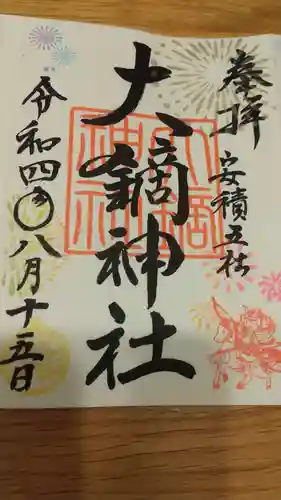 奉拝
安積五社
大鏑神社
大鏑
神社
令和四年八月十五日